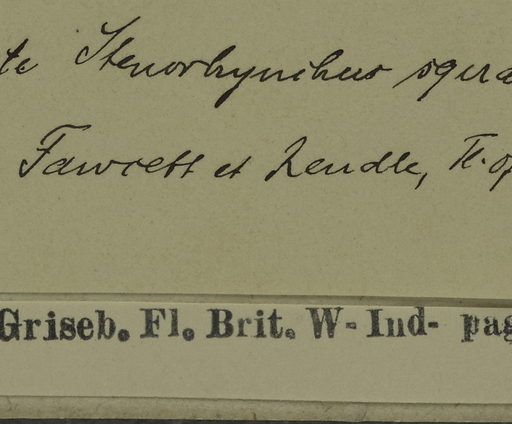 te Stenorhynchus squa
Fawcett et Rendle, Fl. of
Griseb. Fl. Brit. W-Ind- pag